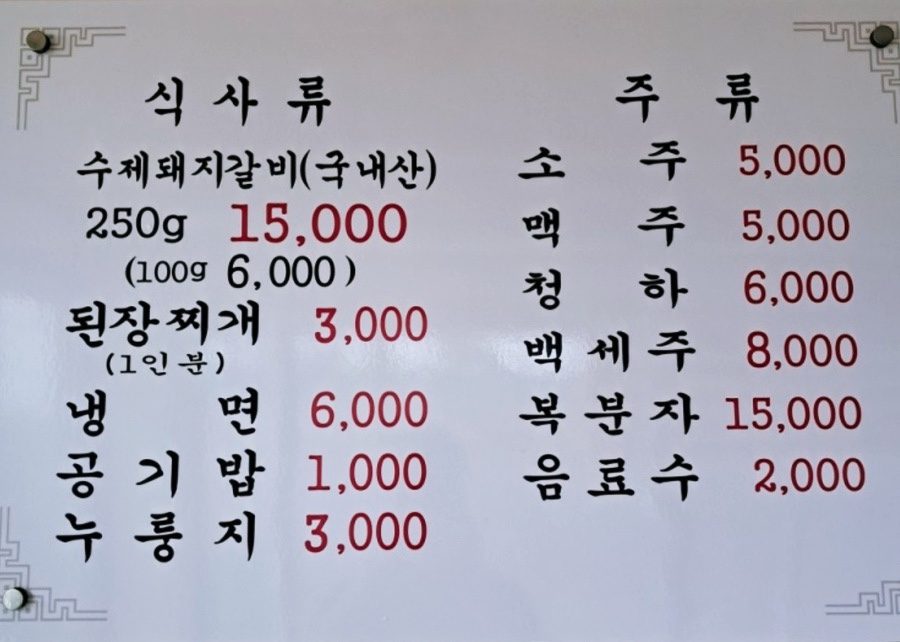 식사류
수제돼지갈비(국내산)
250g 15,000
(100g 6,000)
된장찌개 3,000
(1인분)
냉면 6,000
공기밥 1,000
누룽지 3,000
주류
소주 5,000
맥주 5,000
청하 6,000
백세주 8,000
복분자 15,000
음료수 2,000